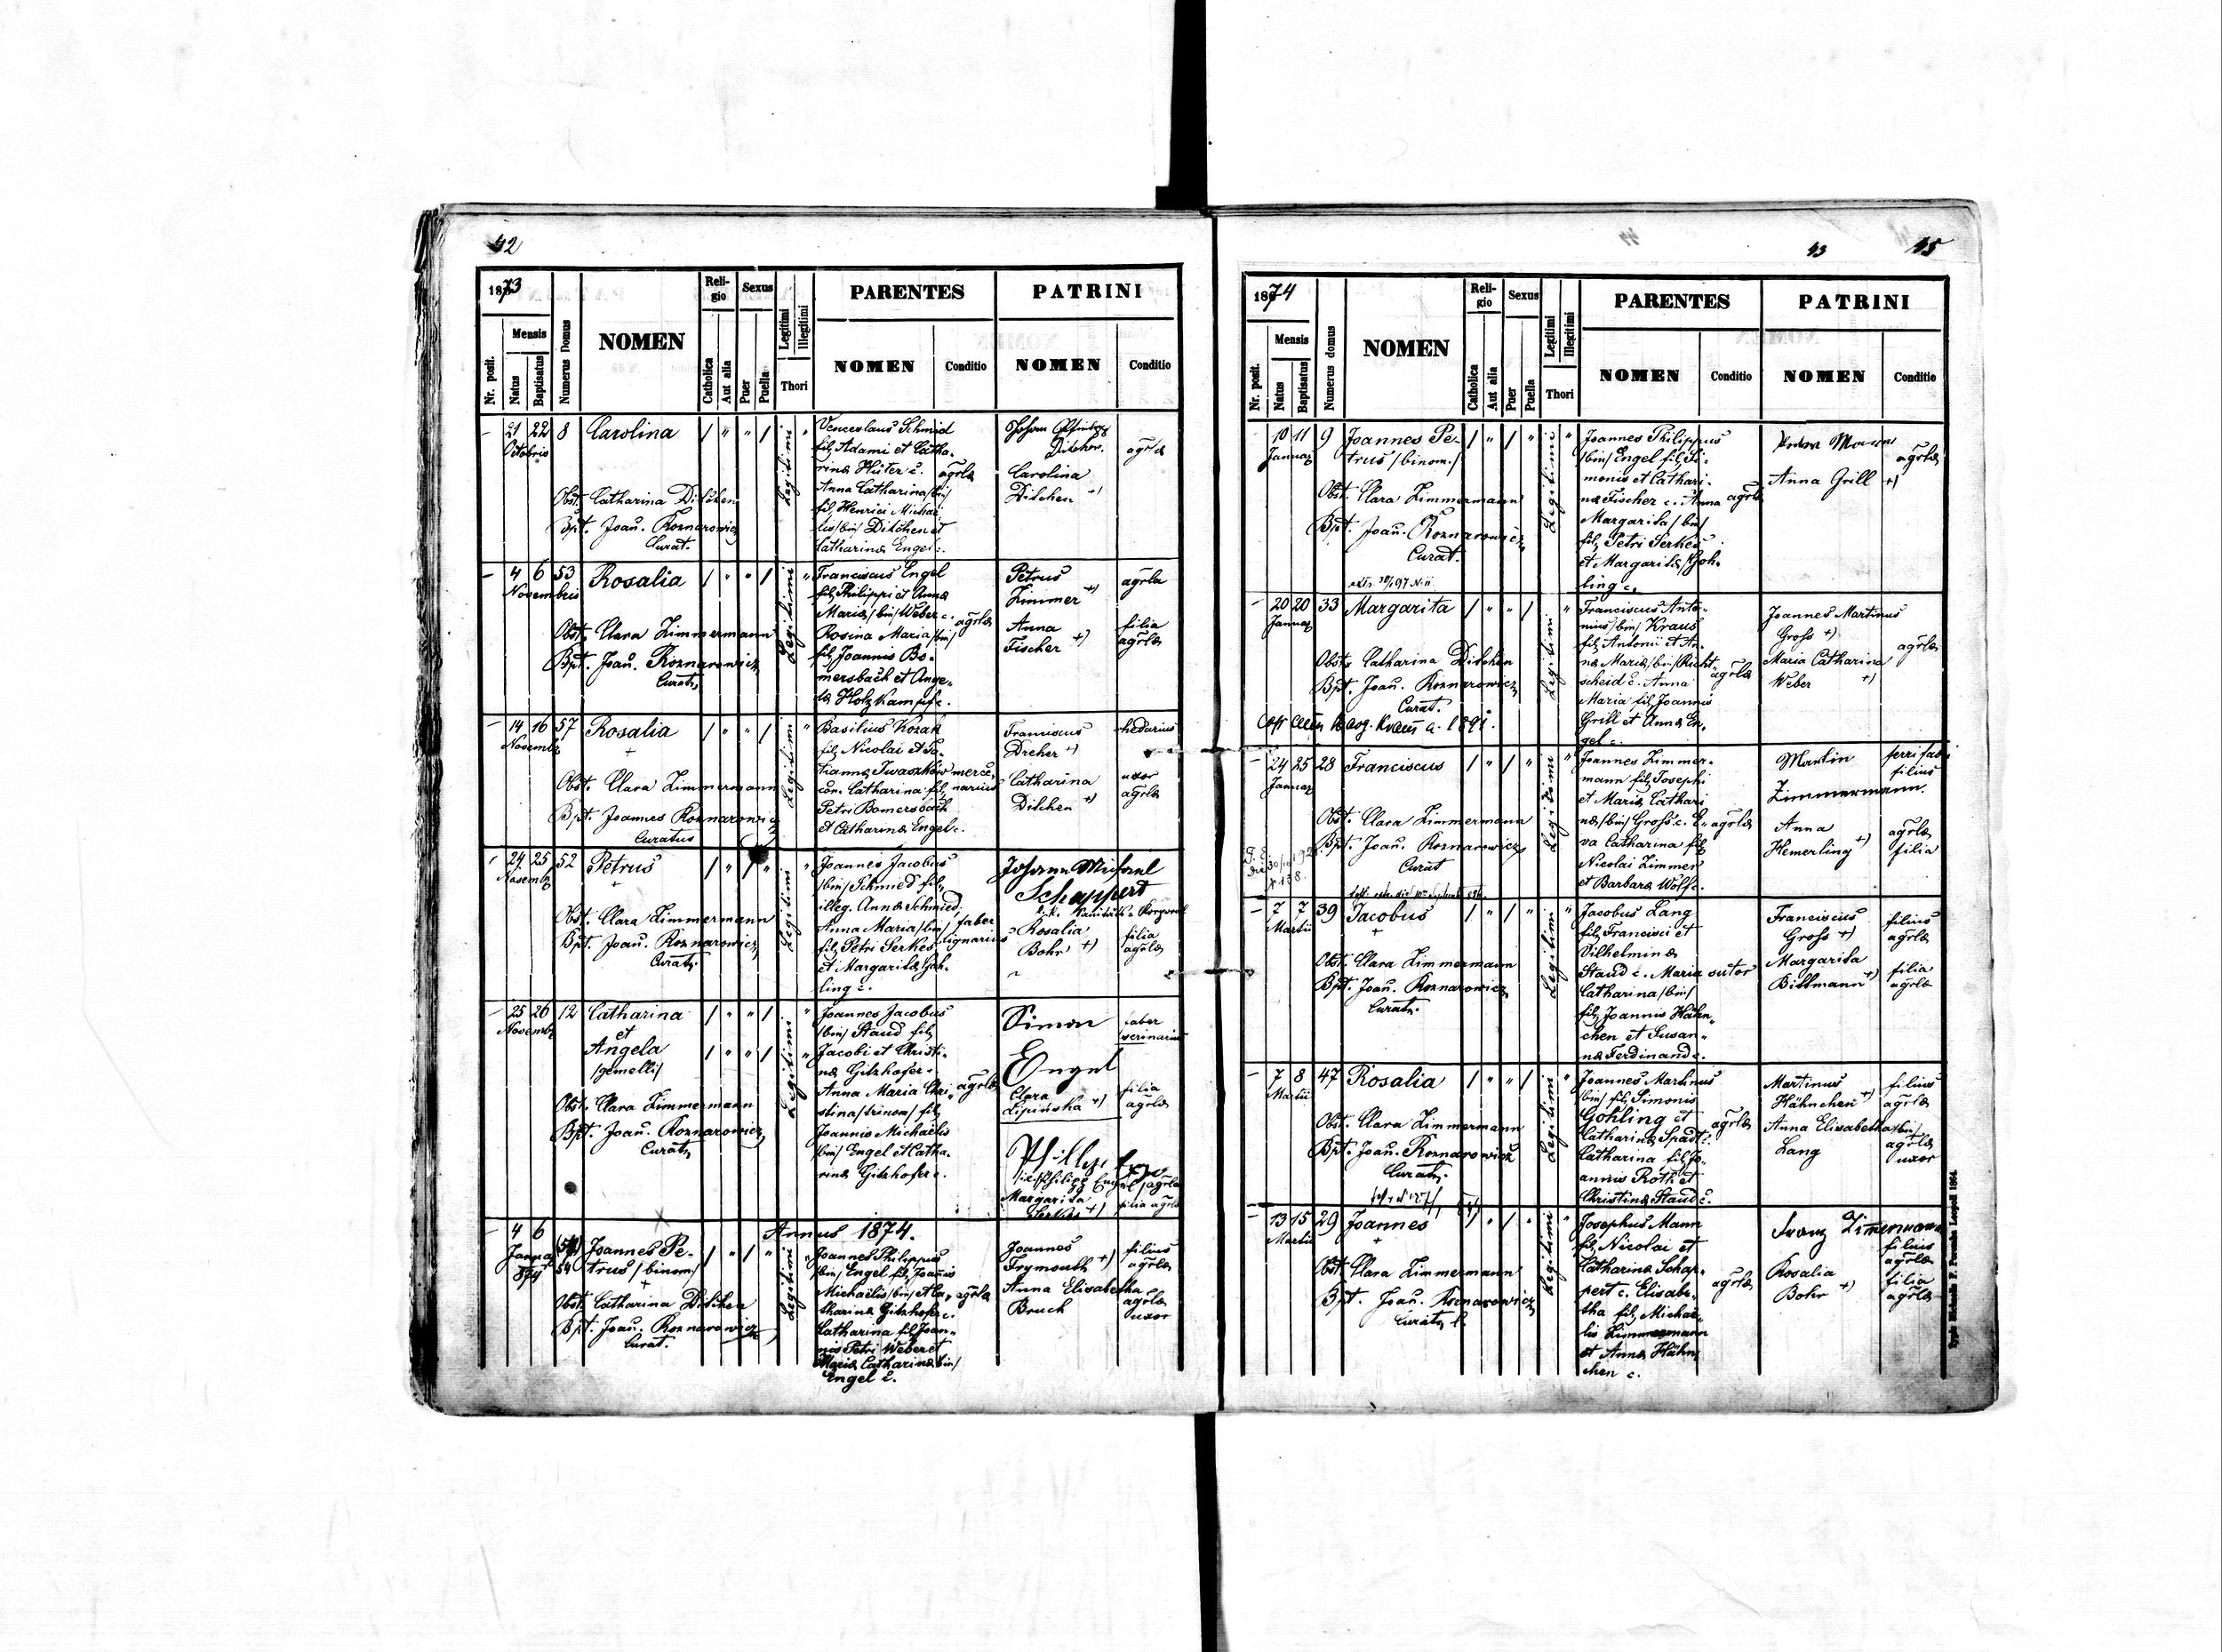 42
1873
Nr. posit.
Mensis
Natus
Baptisatus
Numerus Domus
NOMEN
Religio
Catholica
Aut alia
Sexus
Puer
Puella
Legitimi
Illegitimi
Thori
PARENTES
NOMEN
Conditio
PATRINI
NOMEN
Conditio
21 22 8 Carolina
Octobris
Obst. Catharina Dilchen
Bpt. Joan. Roznarowicz
Curat.
Legitimi
Venceslaus Schmid
fil. Adami et Catha-
rina Hüter c.
Anna Catharina /bin/
fil. Henrici Michae
lis /bin/ Dilchen et
Catharina Engel c.
agrla
Dilchen
Carolina
Dilchen +)
agrla
4 6 53 Rosalia
Novembris
Obst. Clara Zimmermann
Bpt. Joan. Roznarowicz
Curat.
Legitimi
Franciscus Engel
fil. Philippi et Anna
Maria /bin/ Weber c.
Rosina Maria /bin/
fil. Joannis Bo-
mersbach et Ange-
la Holzkampf c.
agrla
Petrus
Zimmer +)
Anna
Fischer +)
agrla
filia
agrla
14 16 57 Rosalia
Novemb.
+
Obst. Clara Zimmermann
Bpt. Joannes Roznarowicz
Curatus
Legitimi
Basilius Kozak
fil. Nicolai et Ta-
tianna Iwaszków
con. Catharina fil.
Petri Bomersbach
et Catharina Engel c.
merce-
narius
Franciscus
Dreher +)
Catharina
Dilchen +)
rhedarius
uxor
agrla
24 25 52 Petrus
Novemb.
+
Obst. Clara Zimmermann
Bpt. Joan. Roznarowicz
Curat.
Legitimi
Joannes Jacobus
/bin/ Schmied fil.
illeg. Anna Schmied,
Anna Maria /bin/
fil. Petri Serkes
et Margarita Goh-
ling c.
faber
lignarius
Johann Michael
Schappert
Rosalia
Bohr +)
filia
agrla
25 26 12 Catharina
Novemb.
et
Angela
/gemelli/
Obst. Clara Zimmermann
Bpt. Joan. Roznarowicz
Curat.
Legitimi
Joannes Jacobus
/bin/ Staud fil.
Jacobi et Christi-
na Gitzhofer -
Anna Maria Chri-
stina /trinom/ fil.
Joannis Michaelis
/bin/ Engel et Catha-
rina Gitzhofer c.
agrla
Simon
Engel
Clara
Lipińska +)
faber
filia
agrla
Margarita
Serkes +)
filia agrla
Annus 1874.
4 6 54 Joannes Pe-
Januar
874
trus /binom/
+
Obst. Catharina Dilchen
Bpt. Joan. Roznarowicz
Curat.
Legitimi
Joannes Philippus
/bin/ Engel fil. Joannis
Michaelis /bin/ et Ca-
tharina Gitzhofer c.
Catharina fil. Joan-
nis Petri Weber et
Maria Catharina /bin/
Engel c.
agrla
Joannes
Freymouth +)
Anna Elisabetha
Bruch
filius
agrla
agrla
uxor
43
45
1874
Nr. posit.
Mensis
Natus
Baptisatus
Numerus domus
NOMEN
Religio
Catholica
Aut alia
Sexus
Puer
Puella
Legitimi
Illegitimi
Thori
PARENTES
NOMEN
Conditio
PATRINI
NOMEN
Conditio
10 11 9 Joannes Pe-
Januar
trus /binom./
Obst. Clara Zimmermann
Bpt. Joan. Roznarowicz
Curat.
Legitimi
Joannes Philippus
/bin/ Engel fil. Si-
monis et Cathari-
na Fischer c. Anna
Margarita /bin/
fil. Petri Serkes
et Margarita /Goh-
ling c.
agrla
Anna Grill +)
agrla
20 20 33 Margarita
Januar
Obst. Catharina Dilchen
Bpt. Joan. Roznarowicz
Curat.
Legitimi
Franciscus Anto-
nius /bin/ Kraus
fil. Antonii et An-
na Maria /bin/ Richt-
scheid c. Anna
Maria fil. Joannis
Grill et Anna En-
gel c.
agrla
Joannes Martinus
Gross +)
Maria Catharina
Weber +)
agrla
24 25 28 Franciscus
Januar
Obst. Clara Zimmermann
Bpt. Joan. Roznarowicz
Curat
Legitimi
Joannes Zimmer-
mann fil. Josephi
et Maria Cathari
na /bin/ Gross c. E-
va Catharina fil.
Nicolai Zimmer
et Barbara Wolf c.
agrla
Martin
Zimmermann.
Anna
Hemerling +)
ferri fabri
filius
agrla
filia
7 7 39 Jacobus
Martii
+
Obst. Clara Zimmermann
Bpt. Joan. Roznarowicz
Curat.
Legitimi
Jacobus Lang
fil. Francisci et
Vilhelmina
Staud c. Maria
Catharina /bin/
fil. Joannis Hähn-
chen et Susan-
na Ferdinand c.
sutor
Franciscus
Gross +)
Margarita
Bittmann +)
filius
agrla
filia
agrla
7 8 47 Rosalia
Martii
Obst. Clara Zimmermann
Bpt. Joan. Roznarowicz
Curat.
Legitimi
Joannes Martinus
/bin/ fil. Simonis
Gohling et
Catharina Spadt c.
Catharina fil. Jo-
annis Roth et
Christina Staud c.
agrla
Martinus
Hähnchen +)
Anna Elisabetha /bin/
Lang
filius
agrla
agrla
uxor
13 15 29 Joannes
Martii
+
Obst. Clara Zimmermann
Bpt. Joan. Roznarowicz
Curat.
Legitimi
Josephus Mann
fil. Nicolai et
Catharina Schap-
pert c. Elisabe-
tha fil. Michae-
lis Zimmermann
et Anna Hähn-
chen c.
agrla
Franz Zimermann
Rosalia
Bohr +)
filius
agrla
filia
agrla